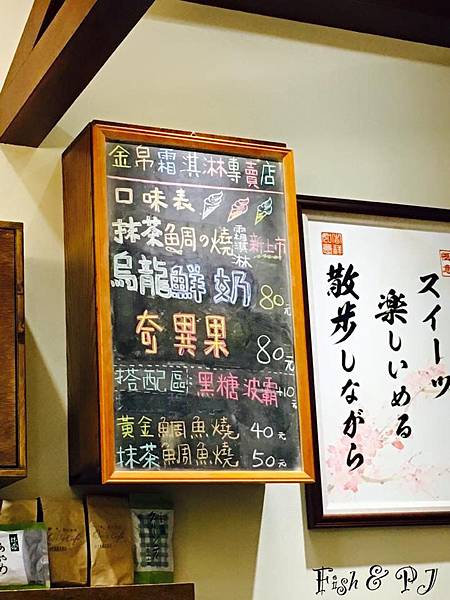 金帛霜淇淋專賣店
口味表
抹茶鯛の燒霜淇淋新上市
烏龍鮮奶 80元
奇異果 80元
搭配區:黑糖波霸+10元
黃金鯛魚燒 40元
抹茶鯛魚燒 50元
スイーツ
楽しいめる
散歩しながら
Fish & PJ